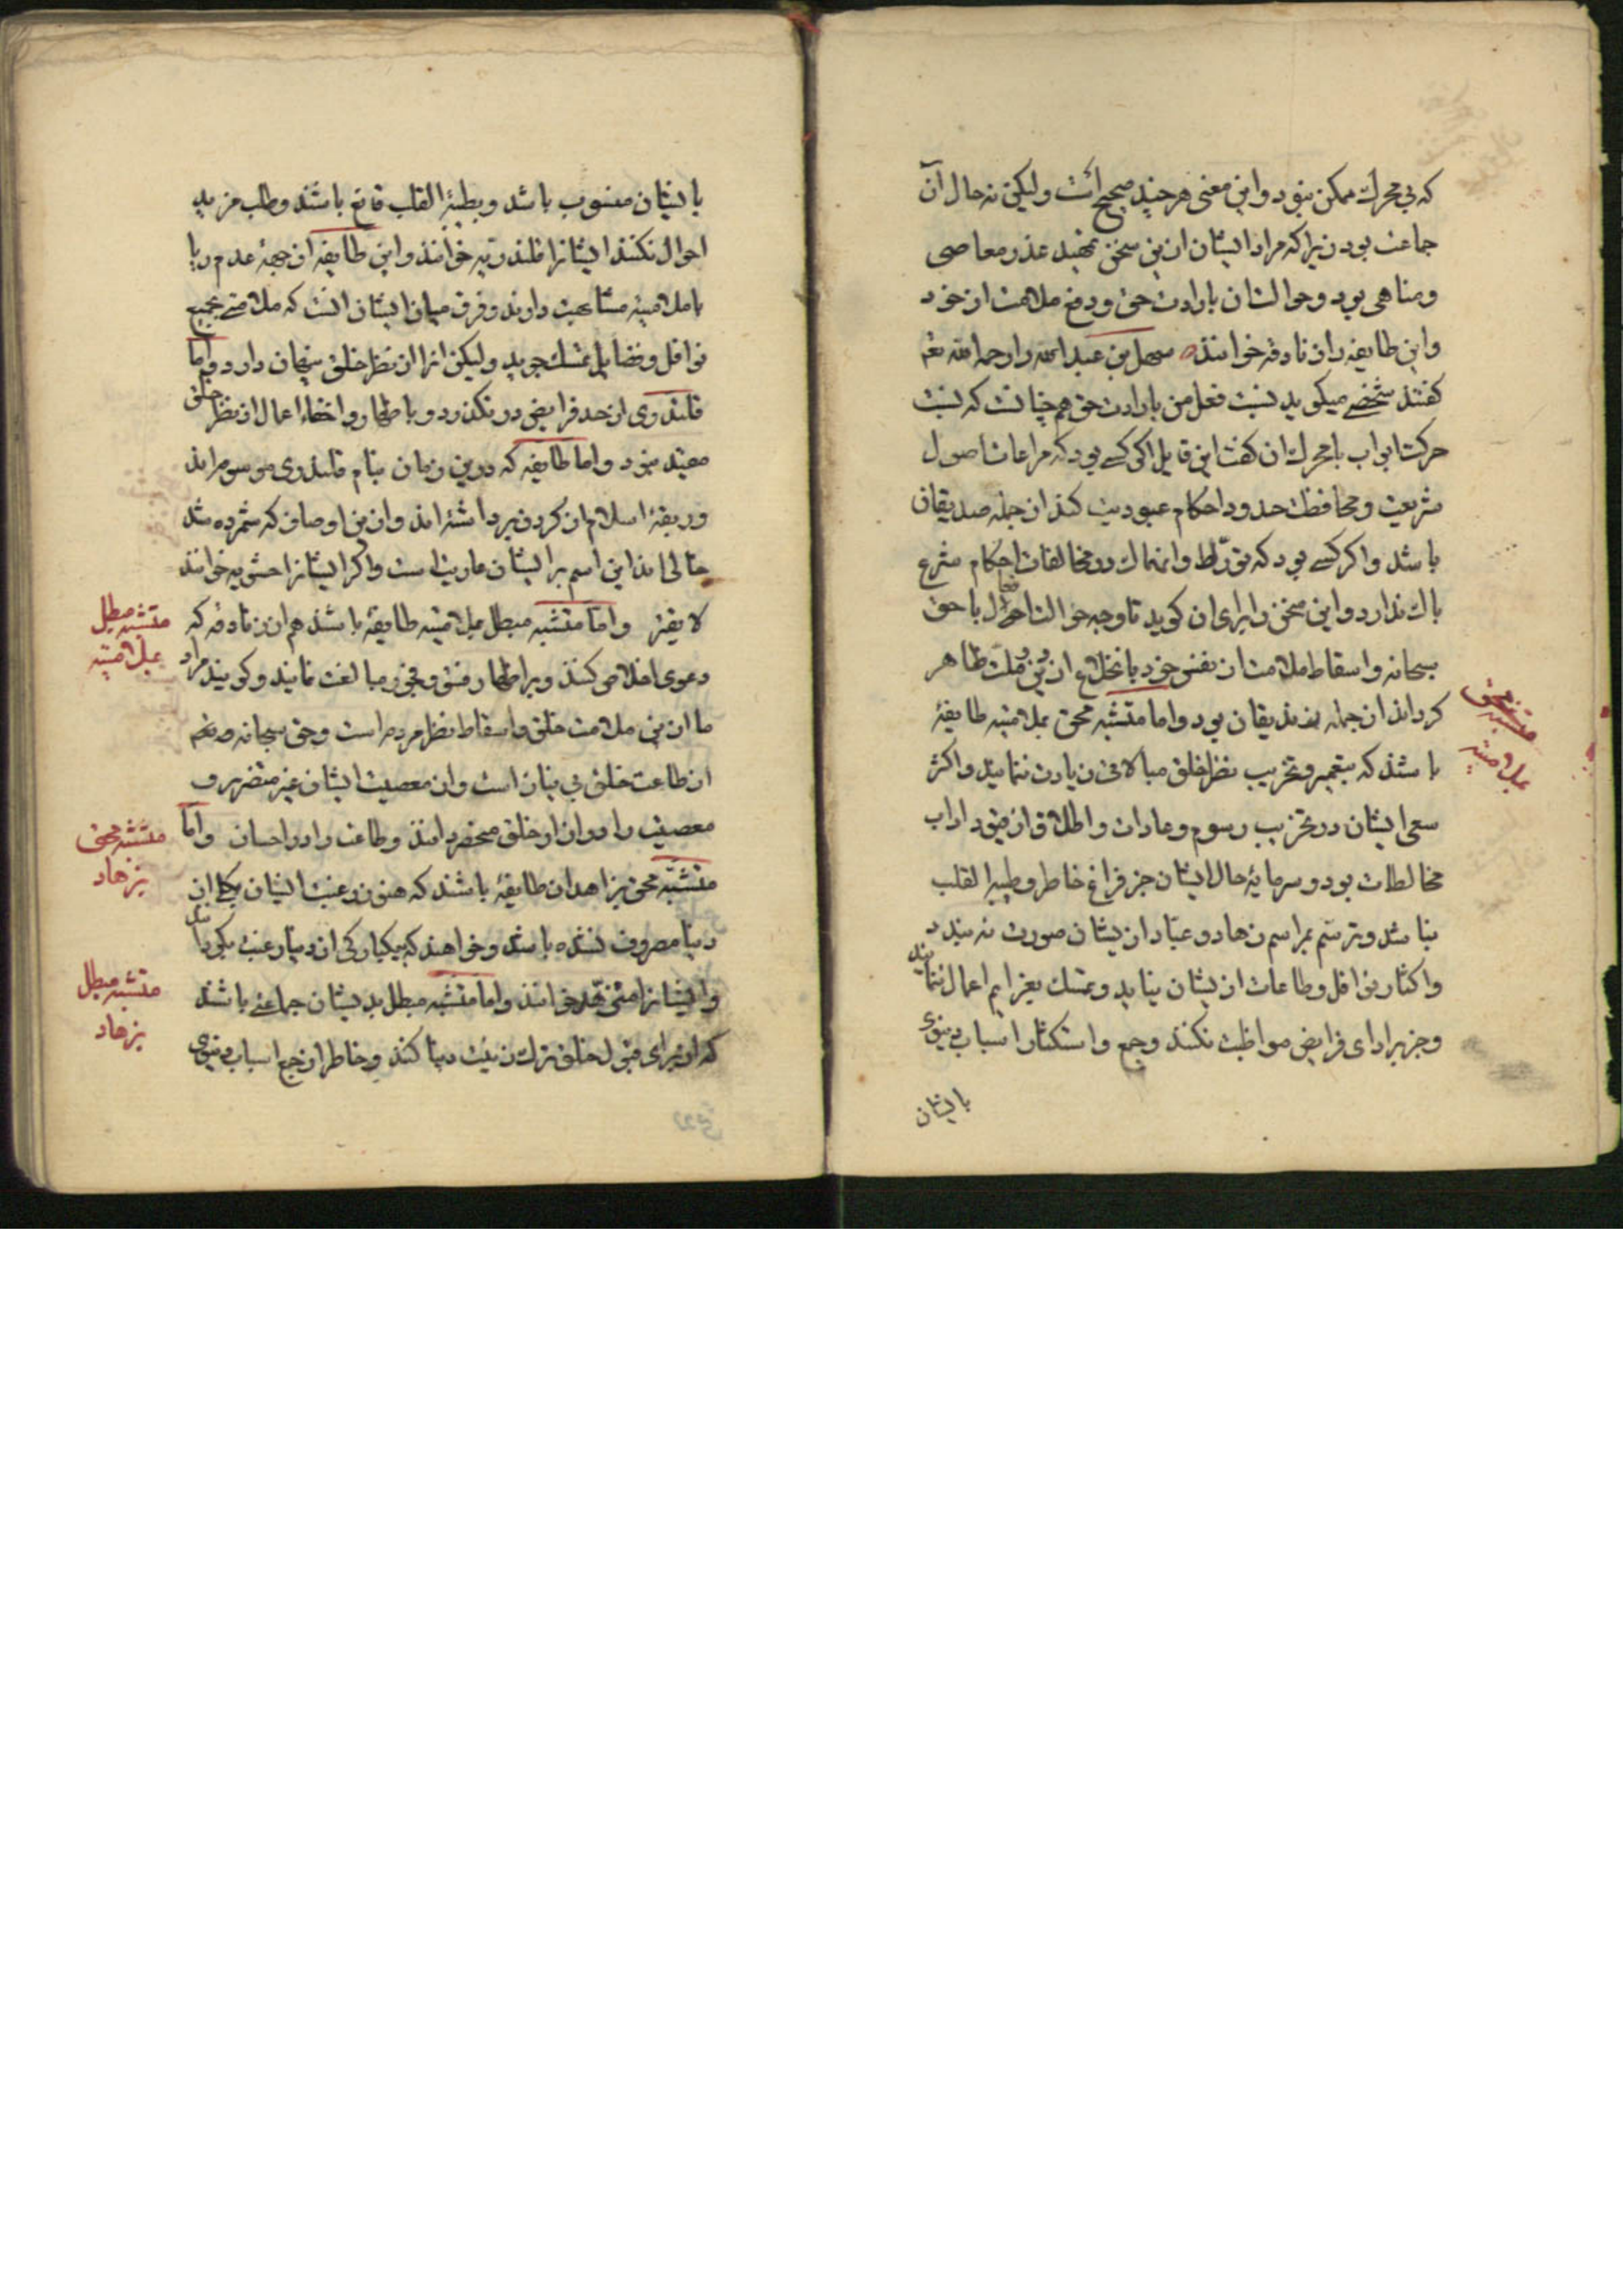 که بی محرک ممکن نبود و این معنی هر چند صحیح است ولیکن نه حال آن
جماعت بود زیرا که مراد ایشان ازین سخن تمهید عذر معاصی
و مناهی بود و حوالت آن بارادت حق و دفع ملامت از خود
و این طایفه را زنادقه خوانند سهل بن عبد الله را رحمه الله
گفتند شخصی میگوید نسبت فعل من بارادت حق همچنانست که نسبت
حرکت ابواب با محرک آن گفت این قایل اگر کسی بود که مراعات اصول
شریعت و محافظت حدود احکام عبودیت کند از جمله صدیقان
باشد و اگر کسی بود که تورط و انهماک در مخالفات احکام شرع
باک ندارد و این سخن را برای آن گوید تا وجه حوالت احوال با حق
سبحانه و اسقاط ملامت از نفس خود بانخلاع از دین و ملت ظاهر
گرداند از جمله زندیقان بود و اما متشبه محق بملامتیه طایفهٔ
باشند که بتعمیر و تخریب نظر خلق مبالاتی زیادت ننمایند و اکثر
سعی ایشان در تخریب رسوم و عادات و اطلاق از قیود اداب
مخالطات بود و سرمایهٔ حال ایشان جز فراغ خاطر و طیبة القلب
نباشد و ترسم بمراسم زهاد و عباد از یشان صورت نه بندد
و اکثار نوافل و طاعات از یشان نیاید و تمسک بعزایم اعمال ننمایند
و جز بر ادای فرایض مواظبت نکنند و جمع و استکثار اسباب دنیوی
بایشان
متشبه محق
بملامتیه
بایشان منسوب باشد و بطیبة القلب قانع باشند و طلب مزید
احوال نکنند ایشانرا قلندریه خوانند و این طایفه از جهة عدم ریا
با ملامتیه مشابهت دارند و فرق میان ایشان انست که ملامتی بجمیع
نوافل و فضایل تمسک جوید ولیکن انرا از نظر خلق پنهان دارد و اما
قلندری از حد فرایض در نگذرد و باظهار و اخفاء اعمال از نظر خلق
مقید نبود و اما طایفه که درین زمان بنام قلندری موسوم اند
و ربقهٔ اسلام از گردن برداشته اند و ازین اوصاف که شمرده شد
خالی اند این اسم بر ایشان عاریت است و اگر ایشانرا حشویه خوانند
لایق‌تر و اما متشبه مبطل بملامتیه طایفهٔ باشند هم از زنادقه که
دعوی اخلاص کنند و بر اظهار فسق و فجور مبالغت نمایند و گویند مراد
ما ازین ملامت خلق و اسقاط نظر مردم است و حق سبحانه و تعالی
از طاعت خلق بی نیاز است و از معصیت ایشان غیر متضرر و
معصیت را در ازار خلق منحصر دانند و طاعت را در احسان و اما
متشبه محق بزاهدان طایفهٔ باشند که هنوز رغبت ایشان بکلی از
دنیا مصروف نشده باشد و خواهند که بیکبارگی از دنیا رغبت بگردانند
و ایشانرا متزهد خوانند و اما متشبه مبطل بدیشان جماعتی باشند
که از برای قبول خلق ترک زینت دنیا کنند و خاطر از جمع اسباب دنیوی
متشبه مبطل
بملامتیه
متشبه محق
بزهاد
متشبه مبطل
بزهاد